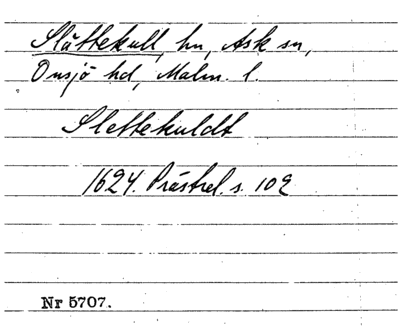 Slättekull, hn, Ask sn,
Onsjö hd, Malm. l.
Slettekuldt
1624. Prästrel. s. 102
Nr 5707.